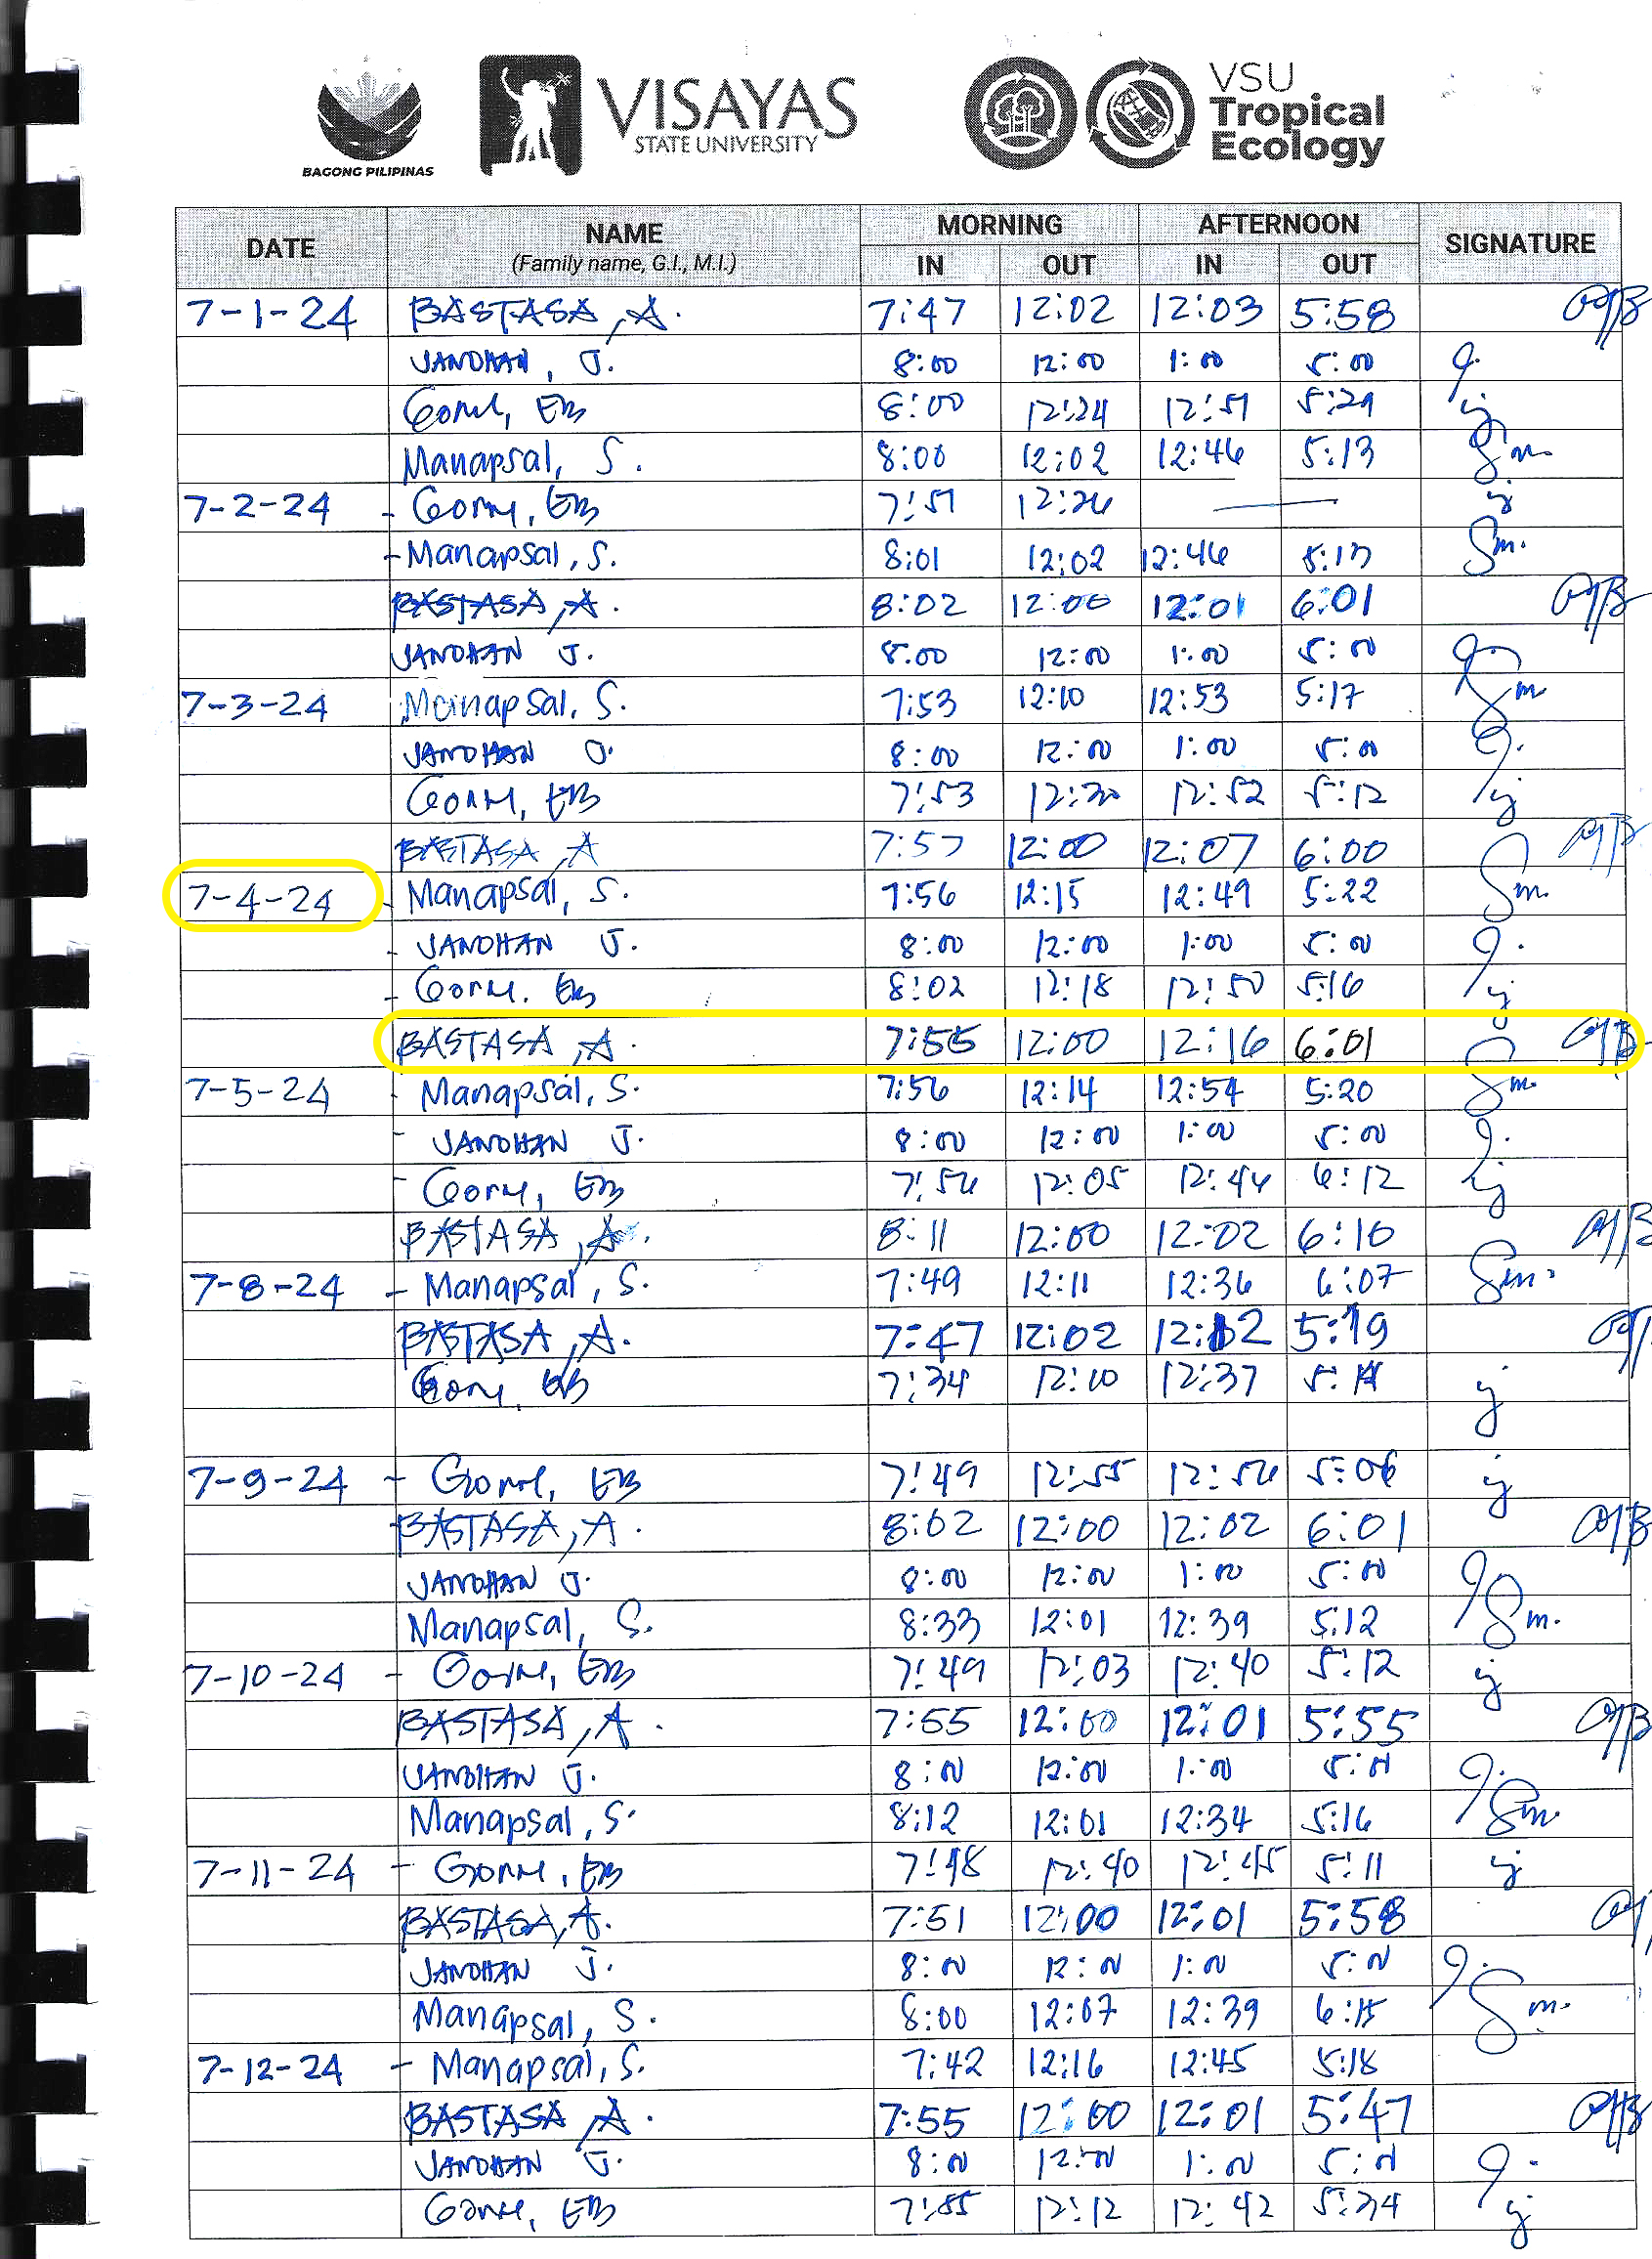 BAGONG PILIPINAS
VISAYAS
STATE UNIVERSITY
VSU
Tropical
Ecology
DATE NAME MORNING AFTERNOON SIGNATURE
(Family name, G.I., M.I.) IN OUT IN OUT
7-1-24 BASTASA, A. 7:47 12:02 12:03 5:58
JANDHAN, J. 8:00 12:00 1:00 5:00
8:00 12:24 12:51 5:29
Manapsal, S. 8:00 12:02 12:46 5:13
7-2-24 - 7:51 12:26 —
- Manapsal, S. 8:01 12:02 12:46 5:13
BASTASA, A. 8:02 12:00 12:01 6:01
JANDHAN J. 8:00 12:00 1:00 5:00
7-3-24 Manapsal, S. 7:53 12:10 12:53 5:17
JANDHAN J. 8:00 12:00 1:00 5:00
7:53 12:30 12:52 5:12
BASTASA, A 7:57 12:00 12:07 6:00
7-4-24 - Manapsal, S. 7:56 12:15 12:49 5:22
- JANDHAN J. 8:00 12:00 1:00 5:00
- 8:02 12:18 12:50 5:16
BASTASA, A. 7:55 12:00 12:16 6:01
7-5-24 - Manapsal, S. 7:56 12:14 12:54 5:20
- JANDHAN J. 8:00 12:00 1:00 5:00
- 7:56 12:05 12:46 6:12
BASTASA, A. 8:11 12:00 12:02 6:10
7-8-24 - Manapsal, S. 7:49 12:11 12:36 6:07
BASTASA, A. 7:47 12:02 12:12 5:19
7:34 12:10 12:37
7-9-24 - 7:49 12:55 12:56 5:06
BASTASA, A. 8:02 12:00 12:02 6:01
JANDHAN J. 8:00 12:00 1:00 5:00
Manapsal, S. 8:33 12:01 12:39 5:12
7-10-24 - 7:49 12:03 12:40 5:12
BASTASA, A. 7:55 12:00 12:01 5:55
JANDHAN J. 8:00 12:00 1:00 5:00
Manapsal, S. 8:12 12:01 12:34 5:16
7-11-24 - 7:48 12:40 12:45 5:11
BASTASA, A. 7:51 12:00 12:01 5:58
JANDHAN J. 8:00 12:00 1:00 5:00
Manapsal, S. 8:00 12:07 12:39 6:15
7-12-24 - Manapsal, S. 7:42 12:16 12:45 5:18
BASTASA, A. 7:55 12:00 12:01 5:47
JANDHAN J. 8:00 12:00 1:00 5:00
7:55 12:12 12:42 5:34